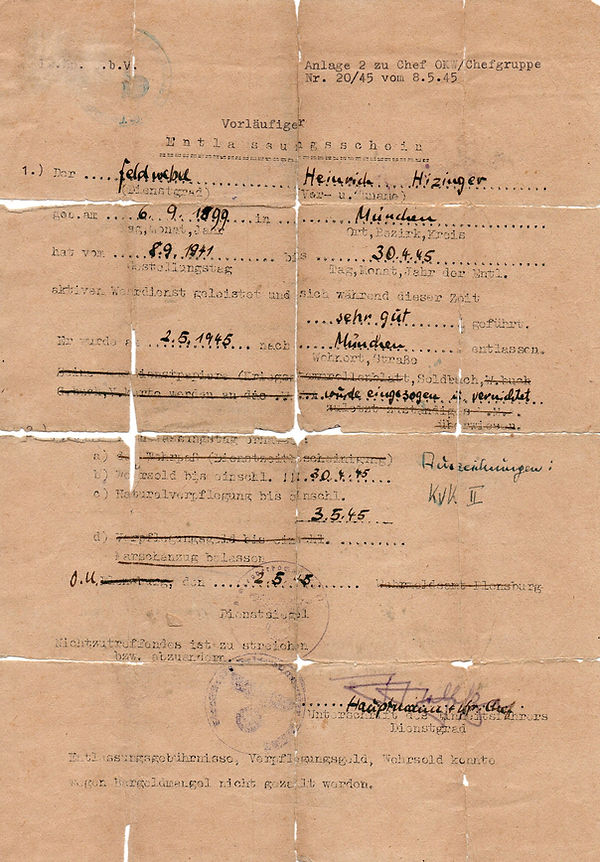 b.V.
Anlage 2 zu Chef OKW/Chefgruppe
Nr. 20/45 vom 8.5.45
Vorläufiger
Entlassungsschein
1.) Der Feldwebel Heinrich Hizinger
(Dienstgrad) Vor- u. Zuname)
geb. am 6. 9. 1899 in München
Tag, Monat, Jahr Ort, Bezirk, Kreis
hat vom 8.9.1941 bis 30.4.45
Gestellungstag Tag, Monat, Jahr der Entl.
aktiven Wehrdienst geleistet und sich während dieser Zeit
sehr gut geführt.
Er wurde am 2.5.1945 nach München entlassen.
Wohnort, Straße
Soldbuch, W.buch
werden an das wurde eingezogen u. vernichtet
zuletzt zuständige
überwiesen.
a) Wehrpaß (Dienstzeitbescheinigung)
b) Wehrsold bis einschl. 30.4.45 Auszeichnungen:
c) Naturalverpflegung bis einschl. KVK II
3.5.45
d) Verpflegungsgeld bis einschl.
Marschanzug belassen
O.U. Flensburg, den 2.5.45 Wehrmeldeamt Flensburg
Dienstsiegel
Nichtzutreffendes ist zu streichen
bzw. abzuändern
Hauptmann u. Chef
Unterschrift des Einheitsführers
Dienstgrad
Entlassungsgebührnisse, Verpflegungsgeld, Wehrsold konnte
wegen Bargeldmangel nicht gezahlt werden.